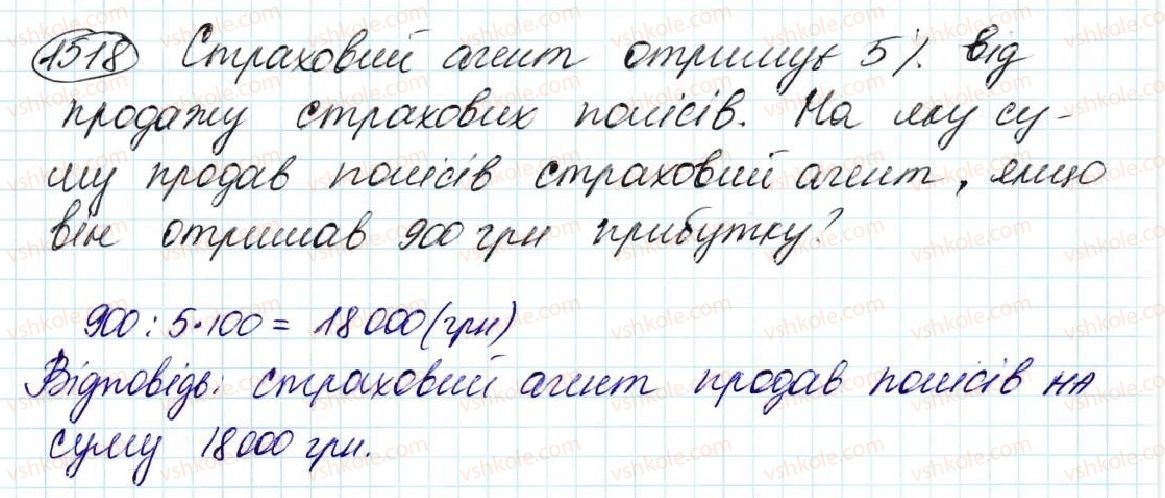 1518 Страховий агент отримує 5% від
продажу страхових полісів. На яку су-
му продав полісів страховий агент, якщо
він отримав 900 грн прибутку?
900 : 5 · 100 = 18 000 (грн)
Відповідь: страховий агент продав полісів на
суму 18 000 грн.